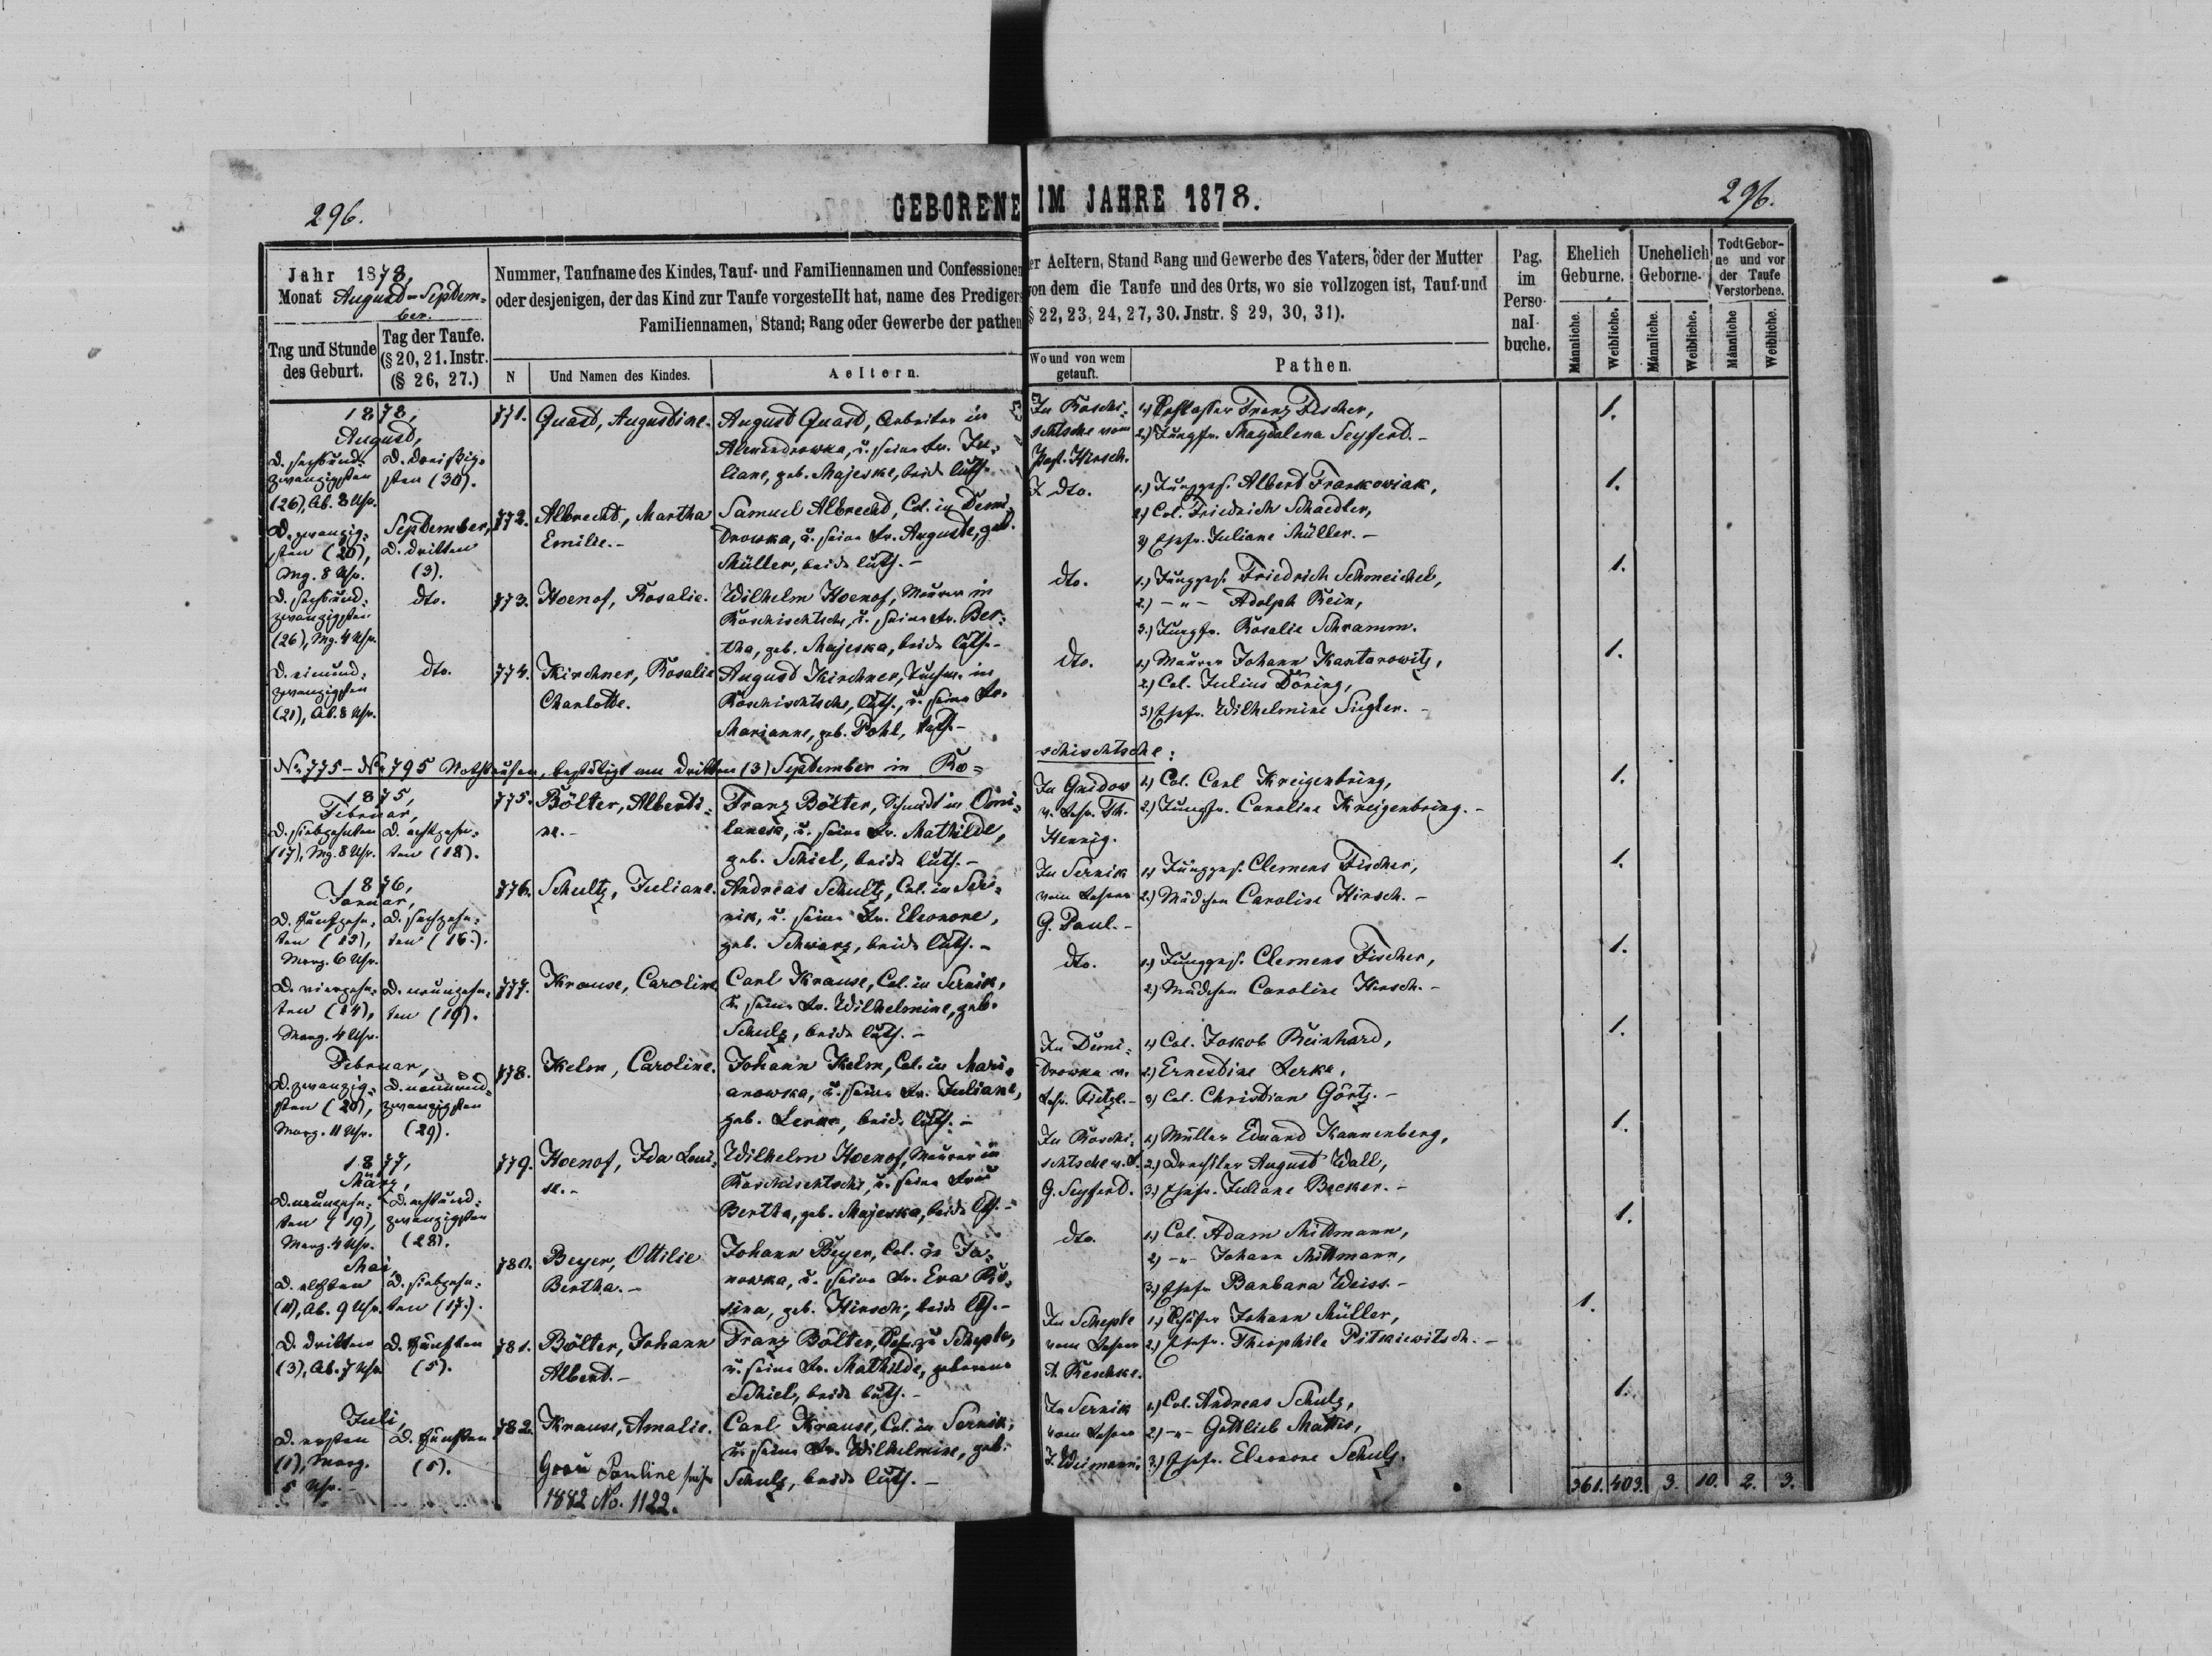 296.
GEBORENE IM JAHRE 1878.
296.
Jahr 1878,
Monat August-Septem=
ber.
Tag und Stunde
des Geburt.
Tag der Taufe.
(§ 20, 21. Instr.
(§ 26, 27.)
Nummer, Taufname des Kindes, Tauf- und Familiennamen und Confessionen
oder desjenigen, der das Kind zur Taufe vorgestellt hat, name des Predigers
Familiennamen, Stand; Rang oder Gewerbe der pathen
N
Und Namen des Kindes.
Aeltern.
er Aeltern, Stand Rang und Gewerbe des Vaters, oder der Mutter
von dem die Taufe und des Orts, wo sie vollzogen ist, Tauf-und
§ 22, 23, 24, 27, 30. Jnstr. § 29, 30, 31).
Wo und von wem
getauft.
Pathen.
Pag.
im
Perso-
nal-
buche.
Ehelich
Geburne.
Unehelich
Geborne.
Todt Gebor-
ne und vor
der Taufe
Verstorbene.
Männliche.
Weibliche.
Männliche.
Weibliche.
Männliche
Weibliche.
1878,
August,
D. sechsund=
zwanzigsten
(26), Ab. 8 Uhr.
D. dreißig=
sten (30).
771.
Quast, Augustine.
August Quast, Arbeiter in
Alexandrowka, u. seine Fr. Ju=
liane, geb. Majeske, beide luth.
In Koschi=
schtsche vom
Past. Hirsch.
Franz Fischer,
2.) Jungfr. Magdalena Seyferd.-
1.
D. zwanzig=
sten (20),
Mg. 8 Uhr.
September,
D. dritten
(3).
772.
Albrecht, Martha
Emilie.-
Samuel Albrecht, Col. in Demi=
drowka, u. seine Fr. Auguste, geb.
Müller, beide luth.-
dto.
1.) Junggs. Albert Frankowiak,
2.) Col. Friedrich Schaedler,
3.) Ehefr. Juliane Müller.-
1.
D. sechsund=
zwanzigsten
(26), Mg. 4 Uhr.
dto.
773.
Hoenof, Rosalie.
Wilhelm Hoenof, Maurer in
Koschischtsche, u. seine Fr. Ber=
tha, geb. Majeska, beide luth.-
dto.
1.) Junggs. Friedrich Schmeichel,
2.) -"- Adolph Rein,
3.) Jungfr. Rosalie Schramm.
1.
D. einund=
zwanzigsten
(21), Ab. 8 Uhr.
dto.
774.
Kirchner, Rosalie
Charlotte.
August Kirchner, Tuchm. in
Koschischtsche, luth., u. seine Fr.
Marianne, geb. Pohl, kath.-
dto.
1.) Maurer Johann Kantorowitz,
2.) Col. Julius Döring,
3.) Ehefr. Wilhelmine Siegler.-
1.
No 775 - No 795 Nothtaufen, bestätigt am dritten (3) September in Ko=
schischtsche:
1875,
Februar,
D. siebzehnten
(17), Mg. 8 Uhr.
D. achtzehn=
ten (18).
775.
Bölter, Alberti=
ne.-
Franz Bölter, Schmidt in Omi=
lanek, u. seine Fr. Mathilde,
geb. Schiel, beide luth.-
In Gnidow
v. Lehr. Th.
Hennig.
1.) Col. Carl Kreigenbring,
2.) Jungfr. Caroline Kreigenbring.-
1.
1876,
Januar,
D. fünfzehn=
ten (15),
Morg. 6 Uhr.
D. sechzehn=
ten (16.).
776.
Schultz, Juliane.
Andreas Schultz, Col. in Ser=
nik, u. seine Fr. Eleonore,
geb. Schwarz, beide luth.-
In Sernik
vom Lehrer
G. Paul.-
1.) Junggs. Clemens Fischer,
2.) Mädchen Caroline Hirsch.-
1.
D. vierzehn=
ten (14),
Morg. 4 Uhr.
D. neunzehn=
ten (19).
777.
Krause, Caroline
Carl Krause, Col. in Sernik,
u. seine Fr. Wilhelmine, geb.
Schulz, beide luth.-
dto.
1.) Junggs. Clemens Fischer,
2.) Mädchen Caroline Hirsch.-
1.
Februar,
D. zwanzig=
sten (20),
Morg. 11 Uhr.
D. neunund=
zwanzigsten
(29).
778.
Kelm, Caroline.
Johann Kelm, Col. in Mari=
anowka, u. seine Fr. Juliane,
geb. Lerke, beide luth.-
In Demi=
drowka v.
Lehr. Tietze.-
1.) Col. Jakob Reinhard,
2.) Ernestine Lerke,
3.) Col. Christian Görtz.-
1.
1877,
März,
D. neunzehn=
ten (19),
Morg. 4 Uhr.
D. achtund=
zwanzigsten
(28).
779.
Hoenof, Ida Loui=
se.-
Wilhelm Hoenof, Maurer in
Koschischtsche, u. seine Frau
Bertha, geb. Majeska, beide lth.-
In Koschi=
schtsche v. L.
G. Seyferd.
1.) Müller Eduard Kannenberg,
2.) Drechsler August Wall,
3.) Ehefr. Juliane Becker.-
1.
Mai,
D. elften
(11), Ab. 9 Uhr.
D. siebzehn=
ten (17.).
780.
Beyer, Ottilie
Bertha.-
Johann Beyer, Col. in Ja=
nowka, u. seine Fr. Eva Ro=
sina, geb. Hirsch, beide lth.-
dto.
1.) Col. Adam Mittmann,
2.) -"- Johann Mittmann,
3.) Ehefr. Barbara Weiss.-
1.
D. dritten
(3), Ab. 7 Uhr.
D. fünften
(5).
781.
Bölter, Johann
Albert.-
Franz Bölter, zu Schepke,
u. seine Fr. Mathilde, geborene
Schiel, beide luth.-
In Scheple
vom Lehrer
A. Reschke.
1.) Schäfer Johann Müller,
2.) Ehefr. Theophile Pitkiewitsch.-
1.
Juli,
D. ersten
(1), Morg.
5 Uhr.-
D. fünften
(5).
782.
Krause, Amalie.
Carl Krause, Col. in Sernik,
u. seine Fr. Wilhelmine, geb.
Schulz, beide luth.-
In Sernik
vom Lehrer
J. Weimann.
1.) Col. Andreas Schulz,
2.) -"- Gottlieb Mattis,
3.) Ehefr. Eleonore Schulz.
1.
Grau Pauline siehe
1882 No. 1122.
361. 409. 3. 10. 2. 3.